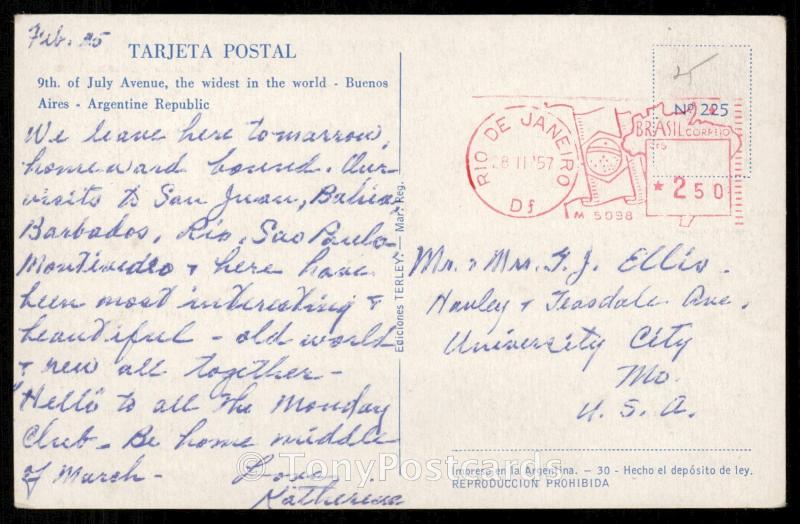 Feb. 25
TARJETA POSTAL
9th. of July Avenue, the widest in the world - Buenos
Aires - Argentine Republic
We leave here tomarrow,
homeward bound. Our
visits to San Juan, Bahia,
Barbados, Rio, Sao Paulo
Montivedeo & here have
been most interesting &
beautiful - old world
& new all together -
"Hello" to all The Monday
Club - Be home middle
of March - Love
Katherine
Ediciones TERLEY. — Mar. Reg.
Nº 225
RIO DE JANEIRO
28 II '57
Df
BRASIL CORREIO
* 2 50
M 5098
Mr. & Mrs. F. J. Ellis.
& Teasdale Ave.
University City
Mo.
U. S. A.
Impreso en la Argentina. — 30 - Hecho el depósito de ley.
REPRODUCCION PROHIBIDA
© TonyPostcards